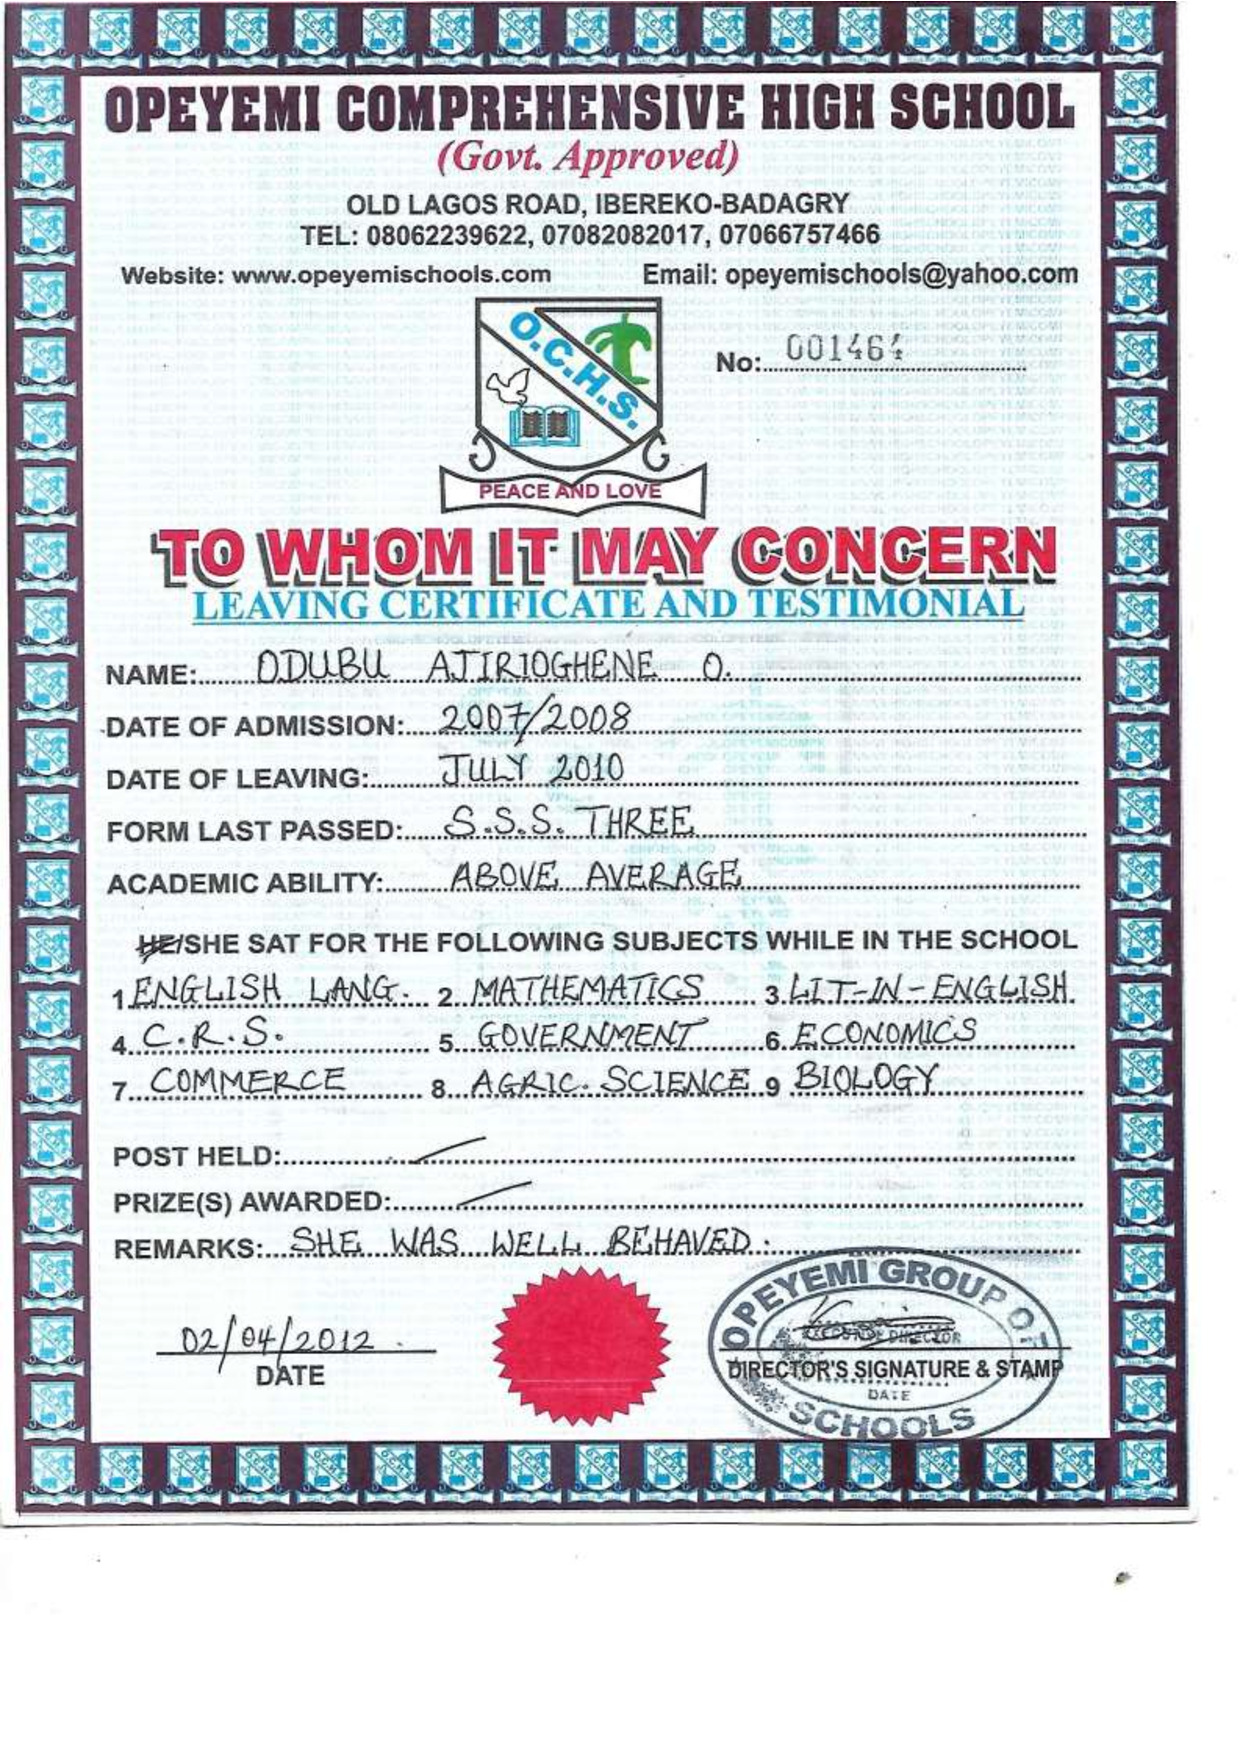 OPEYEMI COMPREHENSIVE HIGH SCHOOL
(Govt. Approved)
OLD LAGOS ROAD, IBEREKO-BADAGRY
TEL: 08062239622, 07082082017, 07066757466
Website: www.opeyemischools.com Email: opeyemischools@yahoo.com
O.C.H.S.
No: 001464
PEACE AND LOVE
TO WHOM IT MAY CONCERN
LEAVING CERTIFICATE AND TESTIMONIAL
NAME: ODUBU AJIRIOGHENE O.
DATE OF ADMISSION: 2007/2008
DATE OF LEAVING: JULY 2010
FORM LAST PASSED: S.S.S. THREE
ACADEMIC ABILITY: ABOVE AVERAGE
HE/SHE SAT FOR THE FOLLOWING SUBJECTS WHILE IN THE SCHOOL
1 ENGLISH LANG. 2 MATHEMATICS 3 LIT-IN-ENGLISH
4 C.R.S. 5 GOVERNMENT 6 ECONOMICS
7 COMMERCE 8 AGRIC. SCIENCE 9 BIOLOGY
POST HELD:
PRIZE(S) AWARDED:
REMARKS: SHE WAS WELL BEHAVED.
OPEYEMI GROUP OF
EXECUTIVE DIRECTOR
02/04/2012
DATE
DIRECTOR'S SIGNATURE & STAMP
DATE
SCHOOLS